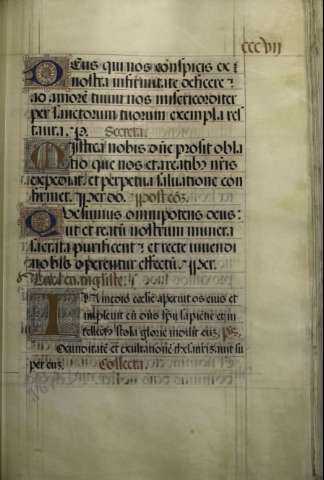 cccvii
Deus qui nos conspicis ex
nostra infirmitate deficere
ad amorē tuum nos misericorditer
per sanctorum tuorum exempla res
taura. p. Secreta.
nobis dn̄e prosit obla
tio que nos et a reatib; nr̄is
expediat. et perpetua saluatione con
firmet. per do. post cō.
Quesumus omnipotens deus.
ut et reatū nostrum munera
sacrata purificent et recte uiuendi
nobis operentur effectū. per.
In medio ecclie aperuit os eius et
impleuit eū dns spū sapiētie et in
tellect; stola glorie induit eū. Ps.
Iocunditatē et exultationē thesaurizauit su
per eū. Collecta.